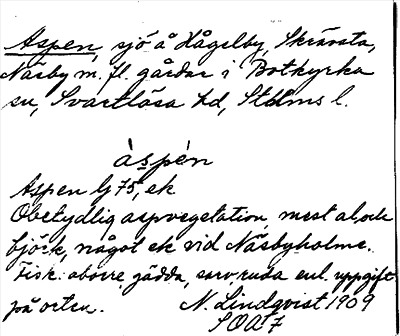 Aspen, sjö å Hågelby, Skrävsta,
Näsby m. fl. gårdar i Botkyrka
sn, Svartlösa hd, Sthlms l.
àspén
Aspen Gj 75, ek
Obetydlig aspvegetation, mest al, och
björk, något ek vid Näsbyholme.
Fisk: aborre, gädda, sarv, ruda enl. uppgift
på orten. N. Lindqvist 1909
SOA 7